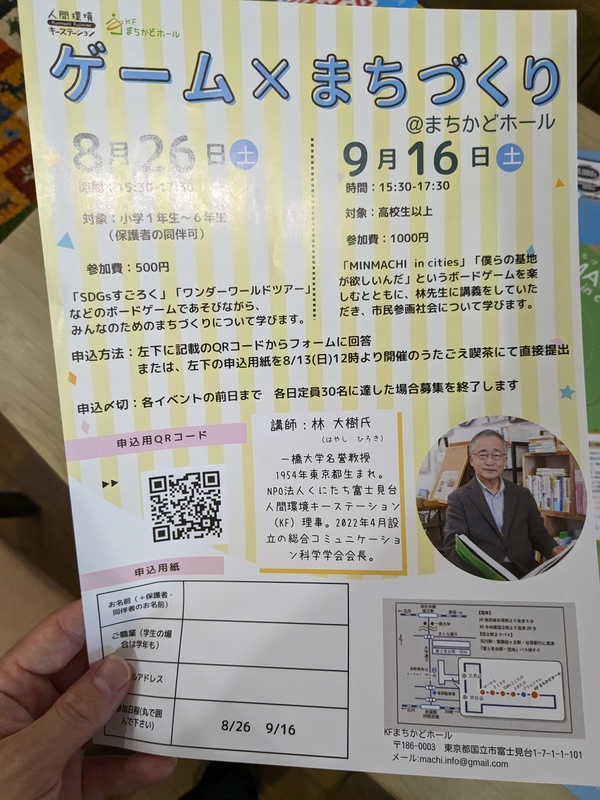 人間環境
キーステーション
KF
まちかどホール
ゲーム×まちづくり
@まちかどホール
8月26日 土
時間：15:30-17:30
対象：小学1年生～6年生
（保護者の同伴可）
参加費：500円
「SDGsすごろく」「ワンダーワールドツアー」
などのボードゲームであそびながら、
みんなのためのまちづくりについて学びます。
9月16日 土
時間：15:30-17:30
対象：高校生以上
参加費：1000円
「MINMACHI in cities」「僕らの基地
が欲しいんだ」というボードゲームを楽
しむとともに、林先生に講義をしていた
だき、市民参画社会について学びます。
申込方法：左下に記載のQRコードからフォームに回答
または、左下の申込用紙を8/13(日)12時より開催のうたごえ喫茶にて直接提出
申込〆切：各イベントの前日まで 各日定員30名に達した場合募集を終了します
申込用QRコード
講師：林 大樹氏
（はやし ひろき）
一橋大学名誉教授
1954年東京都生まれ。
NPO法人くにたち富士見台
人間環境キーステーション
（KF）理事。2022年4月設
立の総合コミュニケーショ
ン科学学会会長。
申込用紙
お名前（＋保護者・
同伴者のお名前）
ご職業（学生の場
合は学年も）
ルアドレス
参加日程(丸で囲
んで下さい)
8/26 9/16
KFまちかどホール
〒186-0003 東京都国立市富士見台1-7-1-1-101
メール:machi.info@gmail.com